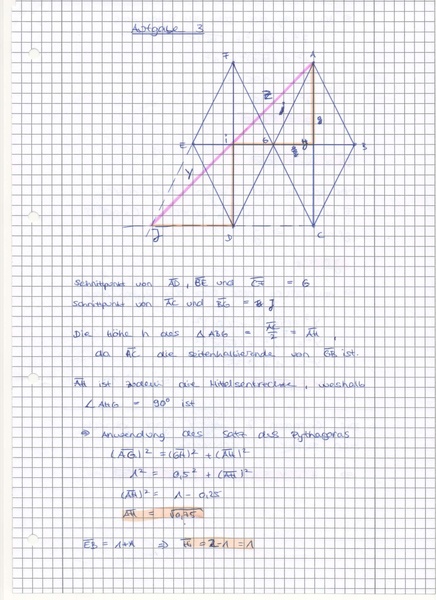 Aufgabe 3
F
A
Z
j
g
E
i
G
g
y
B
Y
J
D
C
Schnittpunkt von AD, BE und CF = G
Schnittpunkt von AC und BG = J
Die Höhe h des △ ABG = AC/2 = AH,
da AC die Seitenhalbierende von GB ist.
AH ist zudem die Mittelsenkrechte, weshalb
∠ AHG = 90° ist
⇒ Anwendung des Satz des Pythagoras
(AG)² = (GH)² + (AH)²
1² = 0,5² + (AH)²
(AH)² = 1 - 0,25
AH = √0,75
EB = 1+1 ⇒ = 2-1 = 1